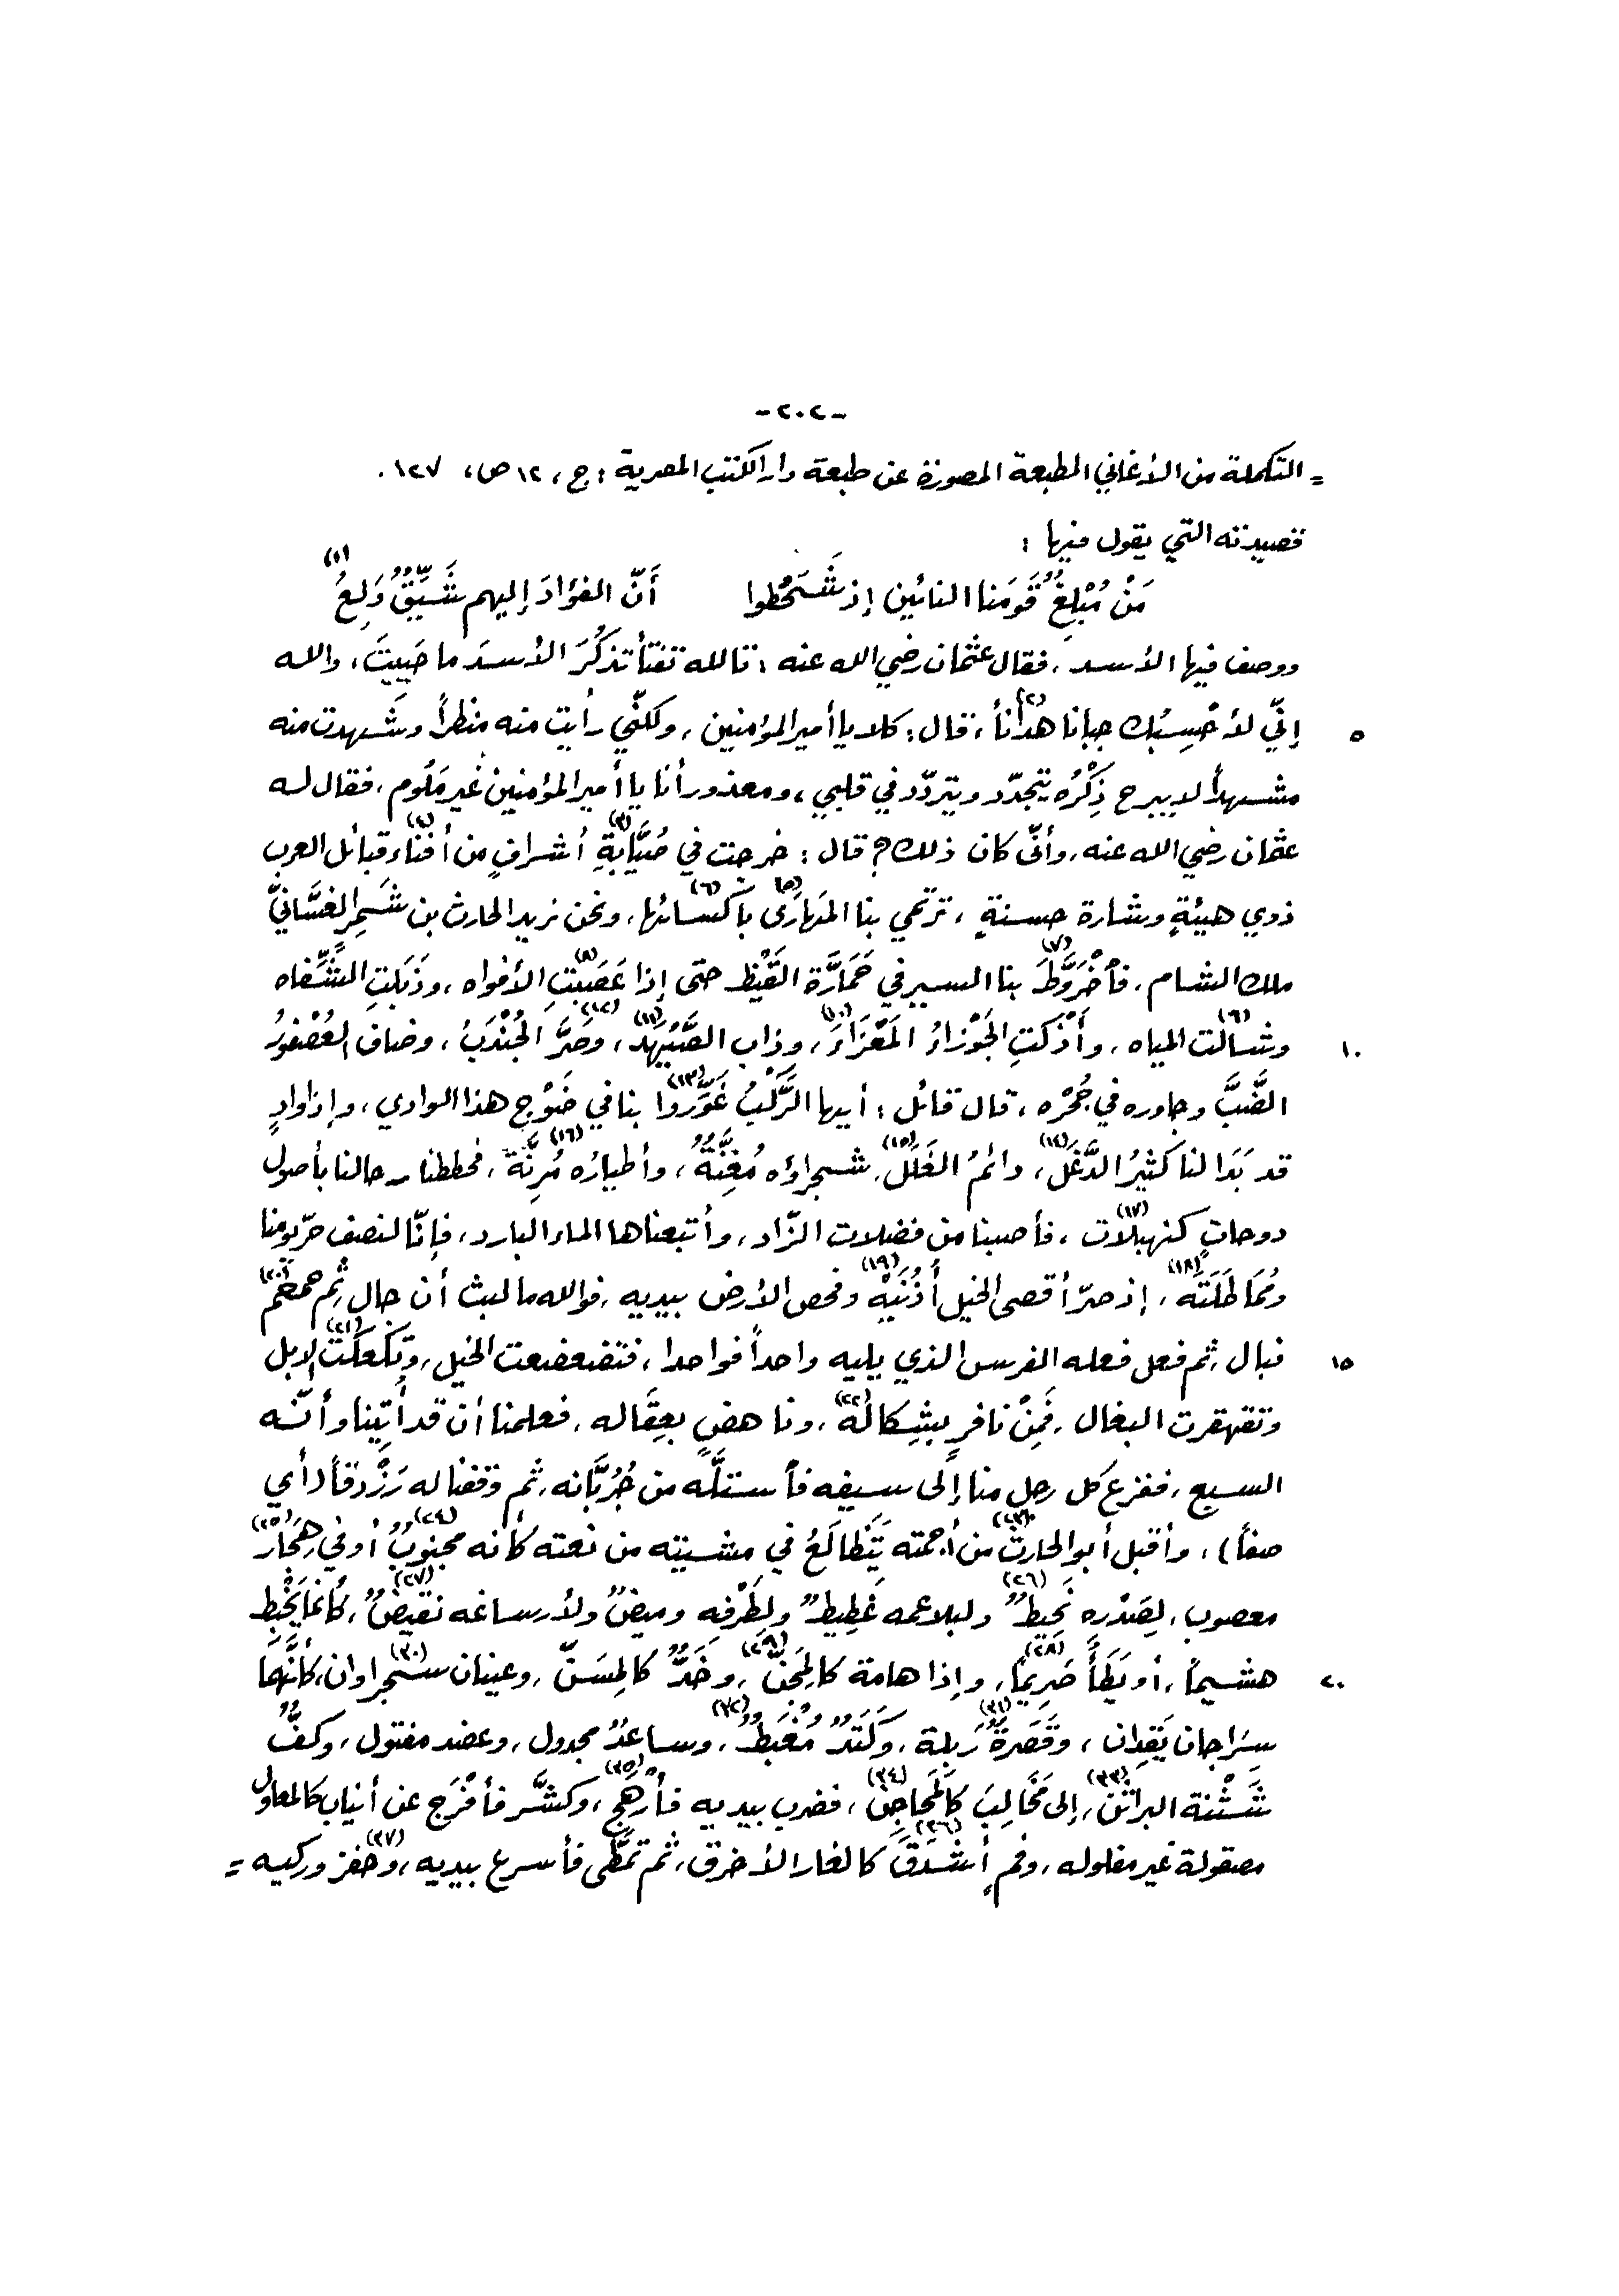 -٢٠٢-
= التكملة من الأغاني المطبعة المصورة عن طبعة دار الكتب المصرية : ج، ١٢ ص، ١٢٧ .
قصيدته التي يقول فيها :
مَنْ مُبْلِغٌ قَومَنا النائين إذ شَحَطُوا أَنَّ الفؤادَ إليهم شَيِّقٌ وَلِعُ (١)
ووصف فيها الأسد ، فقال عثمان رضي الله عنه : تالله تفتأ تذكُرَ الأسدَ ما حَيِيتَ ، والله
٥ إنِّي لأَحْسِبُك جبانا هداناً (٢) ، قال : كلا يا أمير المؤمنين ، ولكنِّي رأيت منه منظراً وشَهدت منه
مشهداً لا يبرح ذِكْرُه يتجدّد ويتردّد في قلبي ، ومعذور أنا يا أمير المؤمنين غير مَلُوم ، فقال له
عثمان رضي الله عنه ، وأنَّى كان ذلك ؟ قال : خرجت في صُيَّابَةِ (٣) أشرافٍ من أفناء (٤) قبائل العرب
ذوي هيئةٍ وشارة حسنةٍ ، ترتمي بنا المَهارَى (٥) بأكسائها (٦) ، ونحن نريد الحارث بن شَمِر الغسَّانيَّ
ملك الشام ، فأخْرَوَّطَ (٧) بنا السير في حَمَارَّة القَيْظ حتى إذا عَصَبتِ (٨) الأفواه ، وذَبَلتِ الشِّفاه
١٠ وشالت (٩) المياه ، وأَذْكَتِ الجَوْزاءُ المَعْزَاءَ (١٠) ، وذاب الصَّيْهَد (١١) ، وصَرَّ (١٢) الجُنْدَبُ ، وضاف العُصْفورُ
الضَّبَّ وجاوره في جُحْرْه ، قال قائل : أيها الرَّكْبُ غَوِّروا (١٣) بنا في ضَوْج هذا الوادي ، وإذا وادٍ
قد بَدَا لنا كثيرُ الدَّغَل (١٤) ، دائمُ الغَلَل (١٥) ، شجراؤه مُغِنَّةٌ ، وأطيارُه مُرِنَّة (١٦) ، فحططنا رحالنا بأصول
دوحاتٍ كنهبلات (١٧) ، فأصبنا من فضلات الزّاد ، وأتبعناها الماء البارد ، فإنّا لنصف حرّ يومنا
ومُمَاطَلَتَه (١٨) ، إذ صرّ أقصى الخيل أُذُنَيْه (١٩) وفحص الأرض بيديه ، فوالله ما لبث أن جال ، ثم حمحم (٢٠)
١٥ فبال ، ثم فعل فعله الفرس الذي يليه واحداً فواحدا ، فتضعضعت الخيل ، وتكعكت (٢١) الإبل
وتقهقرت البغال ، فَمِنْ نافرٍ بِشِكَالُه (٢٢) ، وناهضٍ بعِقَاله ، فعلمنا أن قد أُتِينا وأنّه
السبع ، ففزع كل رجل منا إلى سيفه فأستلَّه من جُرُبَّانه ، ثم وقفنا له رَزْدقاً (أي
صفاً) ، وأقبل أبو الحارث (٢٣) من أجمته يَتَظالَعُ في مشيته من نعته كأنه مجنوبٌ (٢٤) أو في هِجَار (٢٥)
معصوب ، لِصَدْره نَحِيطٌ (٢٦) ولبلاعمه غَطِيطٌ ولِطَرْفِه وميضٌ ولأرساغه نقيضٌ (٢٧) ، كأنما يَخْبِط
٢٠ هشيماً ، أو يَطَأُ صَرِيماً (٢٨) ، وإذا هامة كالمِجَنّ (٢٩) ، وخَدٌّ كالمِسَنّ ، وعينان سجراوان (٣٠) ، كأنَّهما
سِرَاجان يَقِدان ، وقَصَرَةٌ (٣١) رَبِلة ، وكَتَدٌ مُغْبَطٌ (٣٢) ، وساعدٌ مجدول ، وعضد مفتول ، وكفٌّ
شَثْنة البراثن (٣٣) ، إلى مَخَالِبَ كالمَحَاجِن (٣٤) ، فضرب بيديه فأرهج (٣٥) ، وكشَّر فأفْرَج عن أنياب كالمعاول
مصقولة غير مفلوله ، وفمٍ أشْدَقَ (٣٦) كالغار الأخرق ، ثم تمطَّى فأسرع بيديه ، وحفز (٣٧) وركيه =